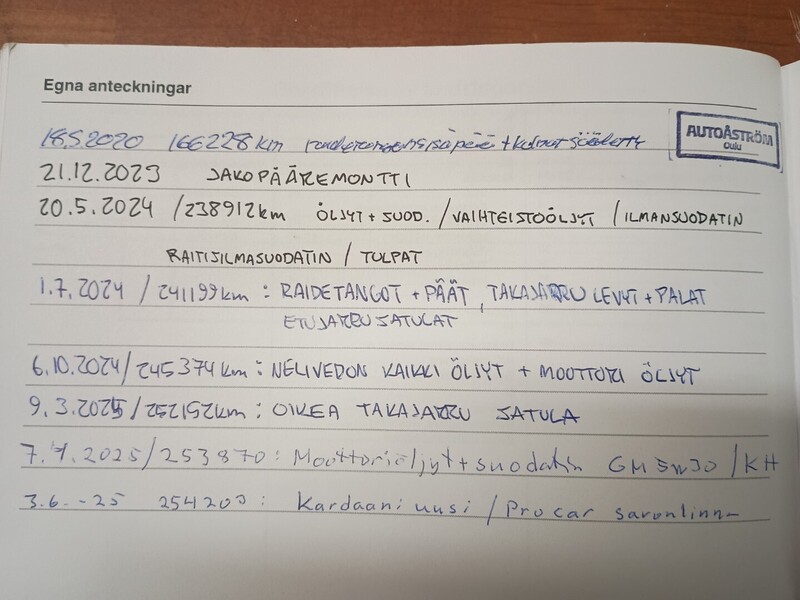 Egna anteckningar
AUTOÅSTRÖM
Oulu
18.5.2020 166228km sisäpää + kulmat säädetty
21.12.2023 JAKOPÄÄREMONTTI
20.5.2024 /238912km ÖLJYT + SUOD. /VAIHTEISTOÖLJYT /ILMANSUODATIN
RAITISILMASUODATIN / TULPAT
1.7.2024 / 241199km : RAIDETANGOT + PÄÄT, TAKAJARRU LEVYT + PALAT
ETUJARRU SATULAT
6.10.2024/245374km : NELIVEDON KAIKKI ÖLJYT + MOOTTORI ÖLJYT
9.3.2025/252152km : OIKEA TAKAJARRU SATULA
7.4.2025/253870 : Moottoriöljyt + suodatin GM 5w30 /KH
3.6.-25 254203 : Kardaani uusi / Procar savonlinna